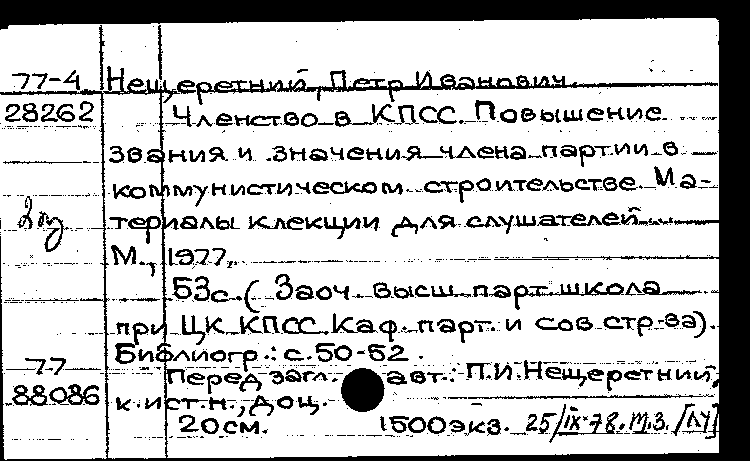 77-4 Нещеретний, Петр Иванович.
28262 Членство в КПСС. Повышение
звания и значения члена партии в
коммунистическом строительстве. Ма-
териалы к лекции для слушателей
М., 1977.
53с. (Заоч. высш. парт. школа
при ЦК КПСС. Каф. парт. и сов. стр-ва).
77 Библиогр.: с. 50-52.
88086 Перед загл. авт.: П.И. Нещеретний,
к.ист.н., доц.
20см. 1500экз. 25/IX-78. М.З. /ЛУ/